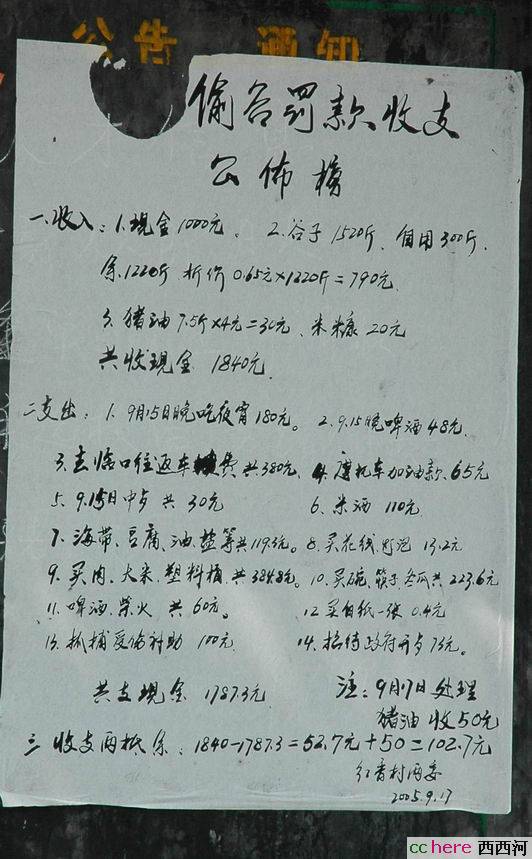 公告 通知
偷谷罚款收支
公佈榜
一、收入：1.现金1000元。 2.谷子1520斤，自用300斤，
余1220斤 折价0.65元×1220斤=790元
3.猪油7.5斤×4元=30元、米米糠20元
共收现金 1840元
二支出：1.9月15日晚吃夜宵180元。 2.9.15晚啤酒48元
3.去临口往返车费共380元、 4.摩托车加油款、65元
5.9.15日中歺共30元 6.米酒110元
7.海带、豆腐、油、盐等共119.3元。 8.买花线、灯泡13.2元
9.买肉、大米、塑料桶、共384.8元。 10.买碗、筷子、冬瓜共223.6元
11.啤酒、柴火 共60元。 12买白纸一张0.4元
13.抓捕受伤补助 100元 14.招待政府开歺73元。
共支现金 1787.3元 注：9月17日处理
猪油收50元
三收支两抵余：1840-1787.3=52.7元+50=102.7元
红香村两委
2005.9.17
cchere 西西河